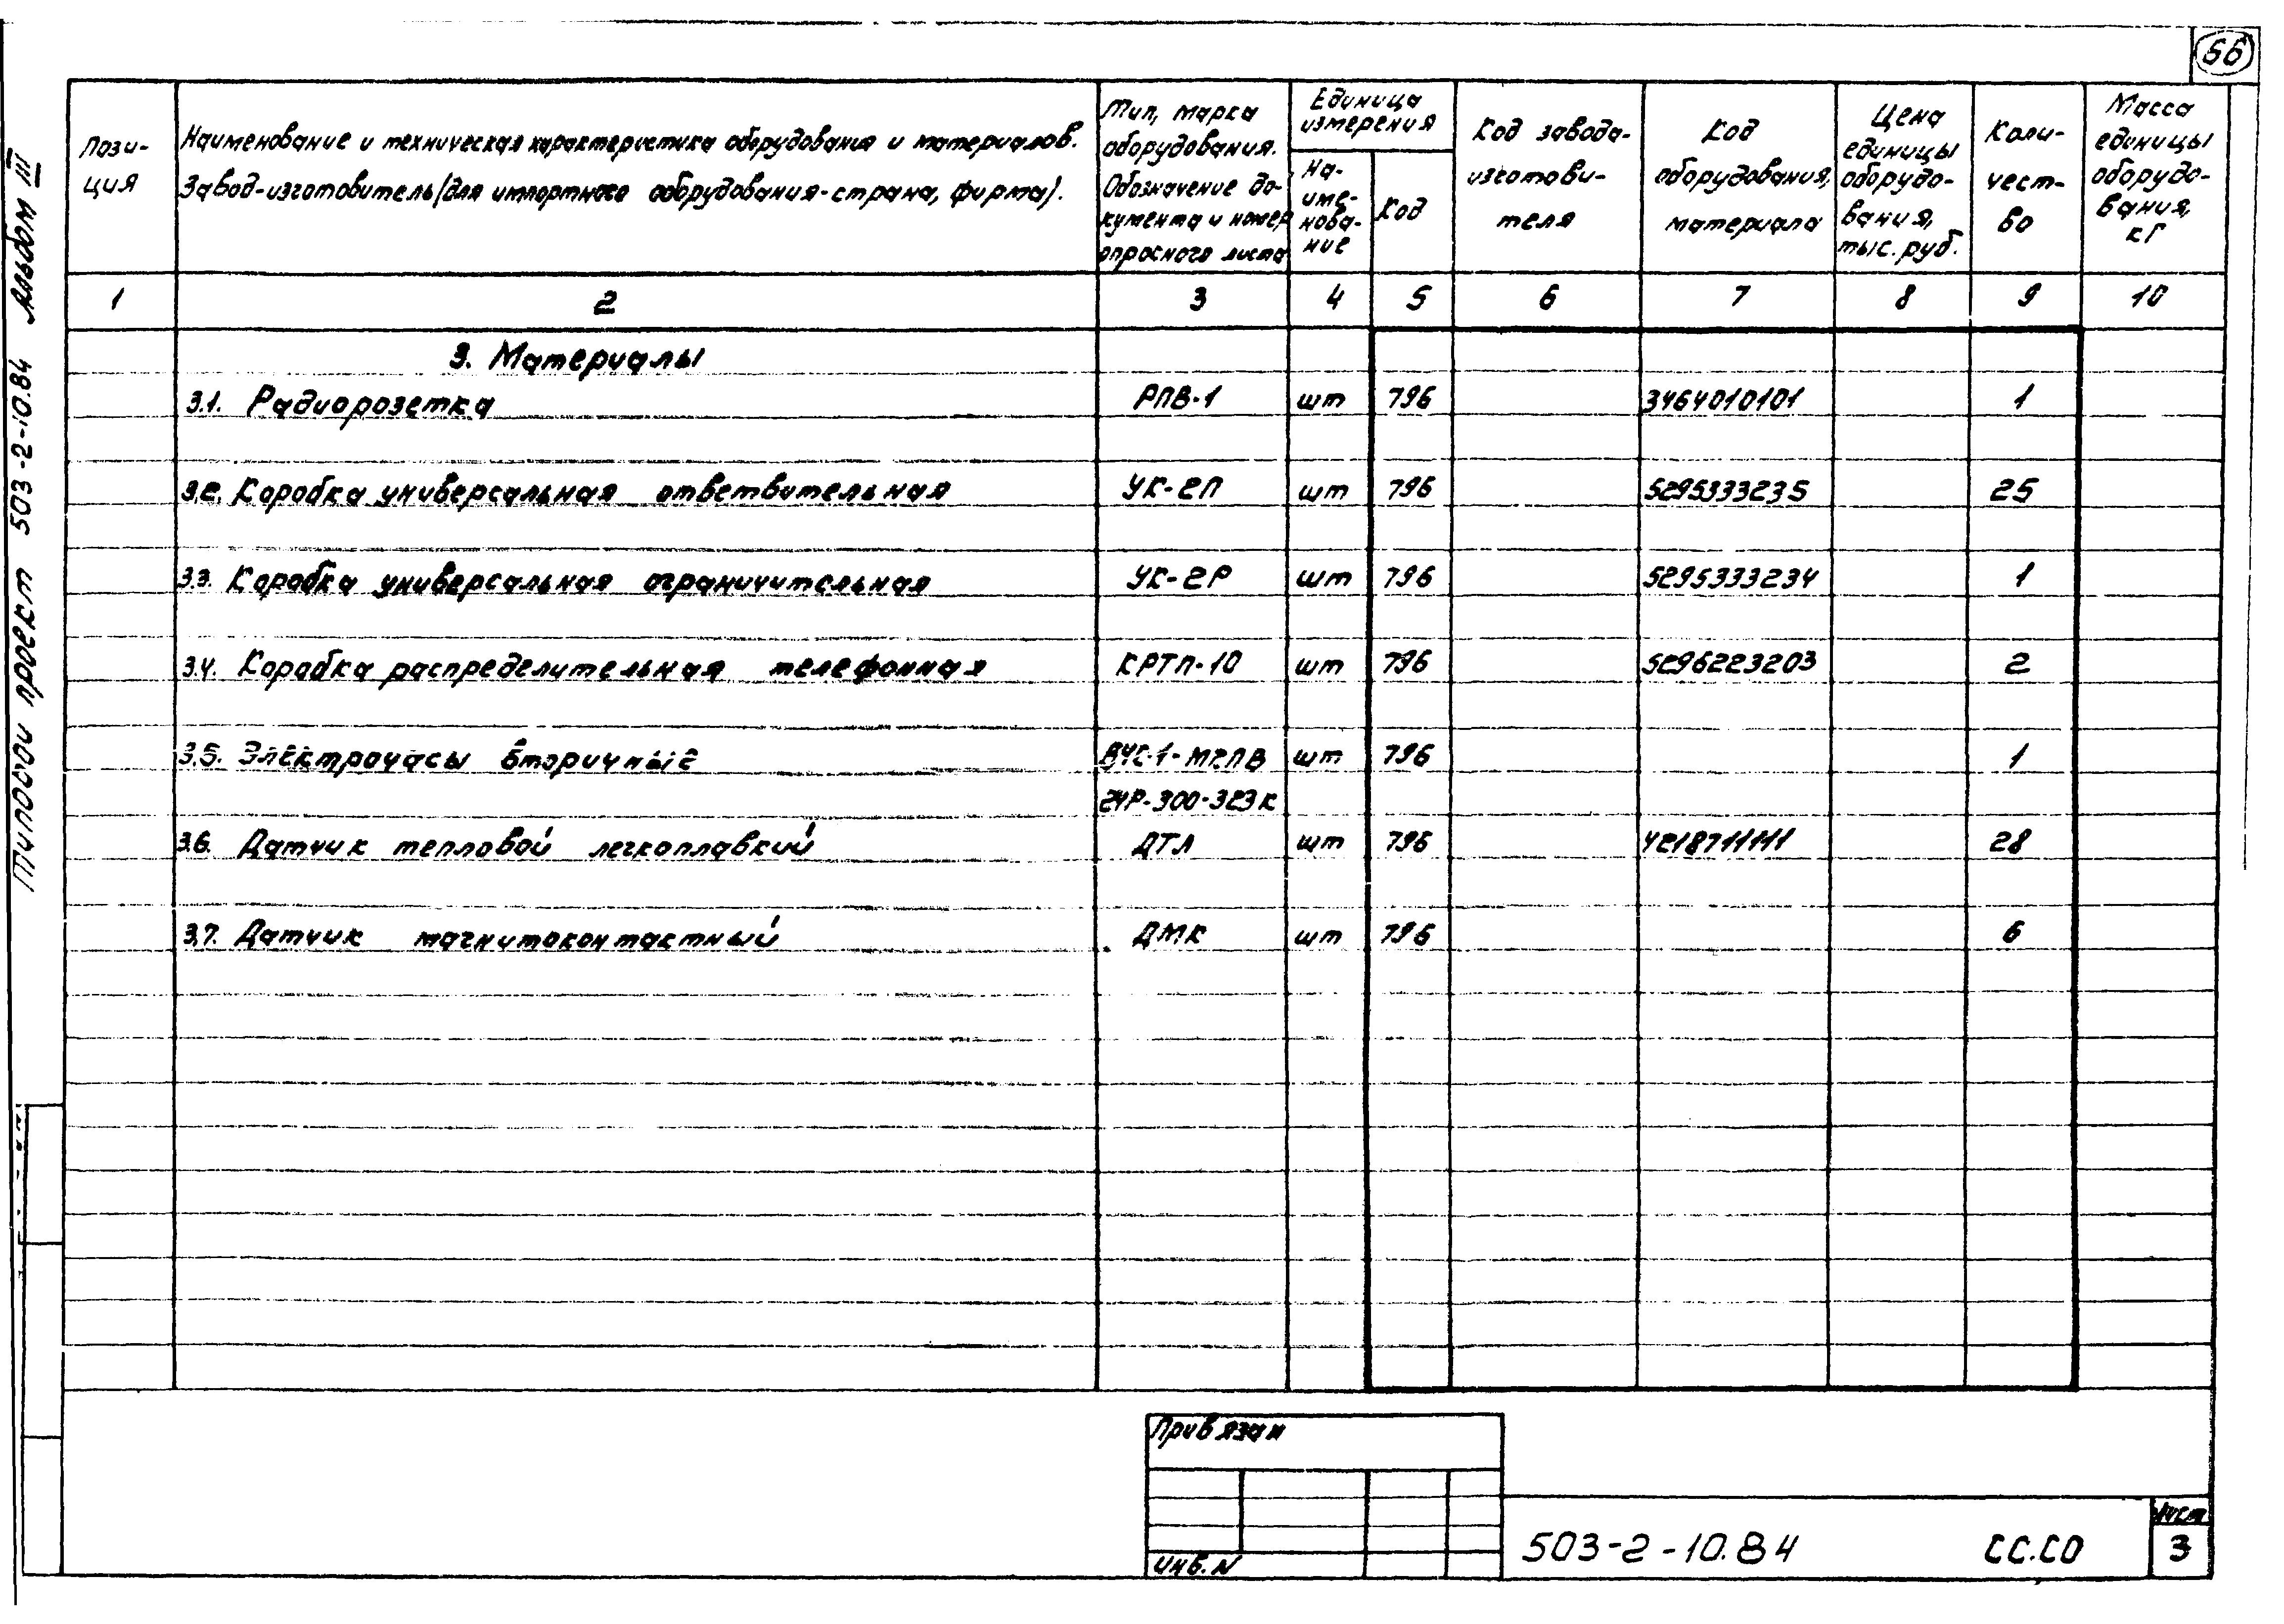 56
Типовой проект 503-2-10.84 Альбом III
Пози-
ция
Наименование и техническая характеристика оборудования и материалов.
Завод-изготовитель (для импортного оборудования-страна, фирма).
Тип, марка
оборудования.
Обозначение до-
кумента и номер
опросного листа
Единица
измерения
На-
име-
нова-
ние
Код
Код завода-
изготови-
теля
Код
оборудования,
материала
Цена
единицы
оборудо-
вания,
тыс. руб.
Коли-
чест-
во
Масса
единицы
оборудо-
вания,
кг
1 2 3 4 5 6 7 8 9 10
3. Материалы
3.1. Радиорозетка РПВ-1 шт 796 3464010101 1
3.2. Коробка универсальная ответвительная УК-2П шт 796 5295333235 25
3.3. Коробка универсальная ограничительная УК-2Р шт 796 5295333234 1
3.4. Коробка распределительная телефонная КРТП-10 шт 796 5296223203 2
3.5. Электрочасы вторичные ВЧС-1-М2ПВ шт 796 1
24Р-300-323К
3.6. Датчик тепловой легкоплавкий ДТЛ шт 796 4218711111 28
3.7. Датчик магнитоконтактный ДМК шт 796 6
Привязан
Инв. N
503-2-10.84 СС.СО
Лист
3